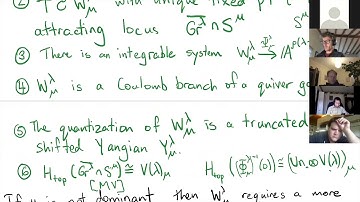 ② T C W^λ_μ with unique fixed pt
attracting locus \overline{Gr}^λ ∩ S^μ S^μ
③ There is an integrable system W^λ_μ →^{Φ^λ_μ} A^{ρ(λ
④ W^λ_μ is a Coulomb branch of a quiver ga
⑤ The quantization of W^λ_μ is a truncated
shifted Yangian Y^λ_μ.
⑥ H_top(\overline{Gr}^λ ∩ S^μ) ≅ V(λ)_μ H_top((Φ^λ_μ)^{-1}(0)) ≅ (Un ⊗ V(λ))_μ
[MV]
If μ is not dominant then W^λ_μ requires a more